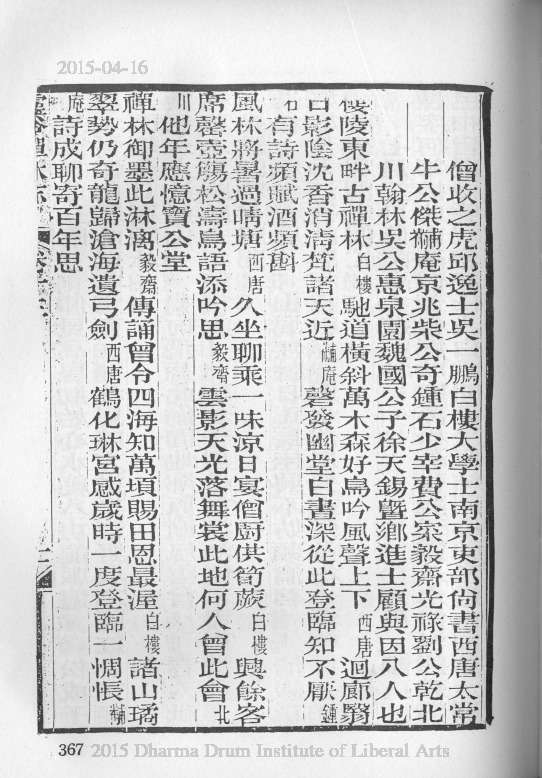 2015-04-16
僧收之虎邱逸士吳一鵬白樓大學士南京吏部尙書西唐太常
牛公傑黼庵京兆柴公奇鍾石少宰費公寀毅齋光祿劉公乾北
川翰林吳公惠泉園魏國公子徐天錫曁鄉進士顧與因八人也
陵東畔古禪林白樓馳道橫斜萬木森好鳥吟風聲上下西唐迴廊翳
日影陰沈香消淸梵諸天近黼庵磬發幽堂白晝深從此登臨知不厭鍾
石有詩頻賦酒頻斟
風林將暑過晴塘西唐久坐聊乘一味涼日宴僧廚供筍蕨白樓興餘客
席罄壺觴松濤鳥語添吟思毅齋雲影天光落舞裳此地何人曾此會北
川他年應憶寶公堂
禪林御墨此淋漓毅齋傳誦曾令四海知萬頃賜田恩最渥白樓諸山璚
翠勢仍奇龍歸滄海遺弓劍西唐鶴化琳宮感歲時一度登臨一惆悵黼
庵詩成聊寄百年思
367 2015 Dharma Drum Institute of Liberal Arts